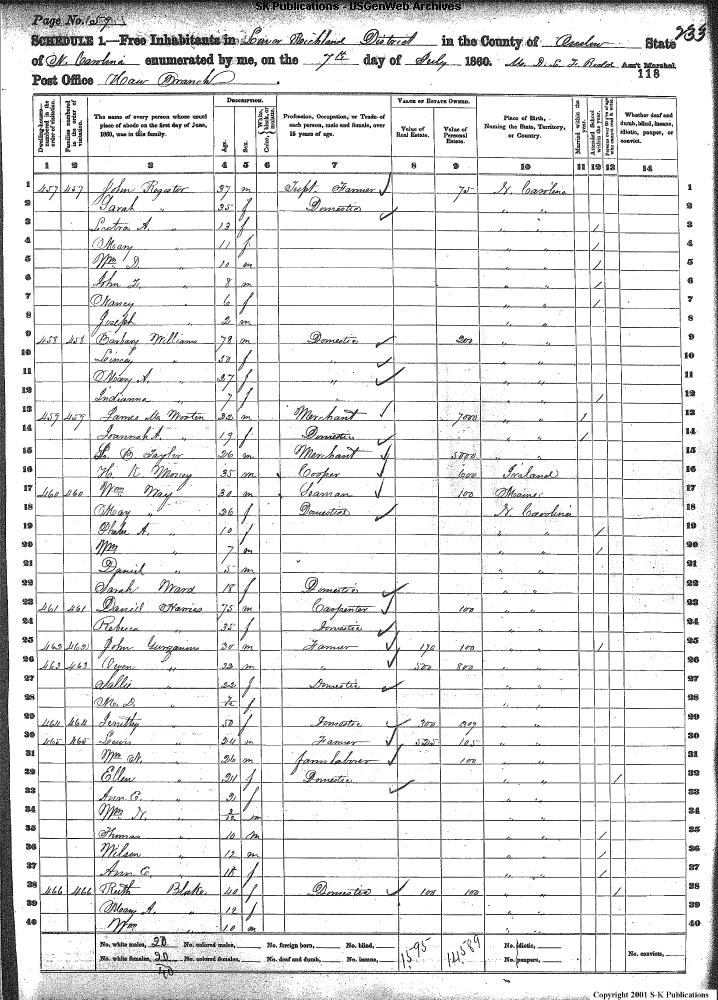 SK Publications - USGenWeb Archives
Page No. 59
233
SCHEDULE 1.—Free Inhabitants in Lower Richland District in the County of Onslow State
of N. Carolina enumerated by me, on the 7th day of July 1860. Ass't Marshal.
118
Post Office Haw Branch
Dwelling-houses— numbered in the order of visitation.
Families numbered in the order of visitation.
The name of every person whose usual place of abode on the first day of June, 1860, was in this family.
DESCRIPTION.
Age.
Sex.
Color, White, black, or mulatto.
Profession, Occupation, or Trade of each person, male and female, over 15 years of age.
VALUE OF ESTATE OWNED.
Value of Real Estate.
Value of Personal Estate.
Place of Birth, Naming the State, Territory, or Country.
Married within the year.
Attended School within the year.
Whether deaf and dumb, blind, insane, idiotic, pauper, or convict.
1 2 3 4 5 6 7 8 9 10 11 12 13 14
1 457 457 John Register 37 m Farmer 75 N. Carolina 1
2 Sarah " 35 f Domestic " " 2
3 A. " 13 f " " / 3
4 Mary " 11 f " " / 4
5 Wm D. " 10 m " " / 5
6 John " 8 m " " / 6
7 Nancy " 6 f " " / 7
8 Joseph " 2 m " " 8
9 458 458 Williams 78 m Domestic 200 " " 9
10 " 50 f " " " 10
11 Mary A. " 27 f " " " 11
12 Indianna " 7 f " " / 12
13 459 459 James Wooten 32 m Merchant 7000 " " 1 13
14 Joannah A. " 19 f Domestic " " 1 14
15 Taylor 26 m Merchant 5000 " " 15
16 H. K. Money 35 m Cooper 600 Ireland 16
17 460 460 Wm Way 30 m Seaman 100 Maine 17
18 May " 26 f Domestic N. Carolina 18
19 A. " 10 f " " / 19
20 Wm " 7 m " " / 20
21 Daniel " 5 m " " 21
22 Sarah Ward 18 f Domestic " " 22
23 461 461 Daniel Harries 75 m Carpenter 100 " " 23
24 Rebecca " 35 f Domestic " " 24
25 462 462 John Gurganus 30 m Farmer 170 100 " " / 25
26 463 463 " 33 m " 500 800 " " 26
27 Sallie " 22 f Domestic " " 27
28 M. D. " f " " 28
29 464 464 " 50 f Domestic 300 " 29
30 465 465 Lewis " 24 m Farmer 525 105 " " 30
31 Wm N. " 26 m farm laborer 100 " " 31
32 Ellen " 21 f Domestic " " / 32
33 Ann E. " f " " 33
34 Wm N. " m " " 34
35 Thomas " 10 m " " / 35
36 Wilson " 12 m " " / 36
37 Ann E. " 18 f " " / 37
38 466 466 Ruth Blake 40 f Domestic 100 100 " " / 38
39 Mary A. " 12 f " " 39
40 Wm " 10 m " " 40
No. white males, 20 No. colored males, No. foreign born, No. blind, 1595 14589 No. idiotic,
No. white females, 20 No. colored females, No. deaf and dumb, No. insane, No. paupers, No. convicts,
40
Copyright 2001 S-K Publications